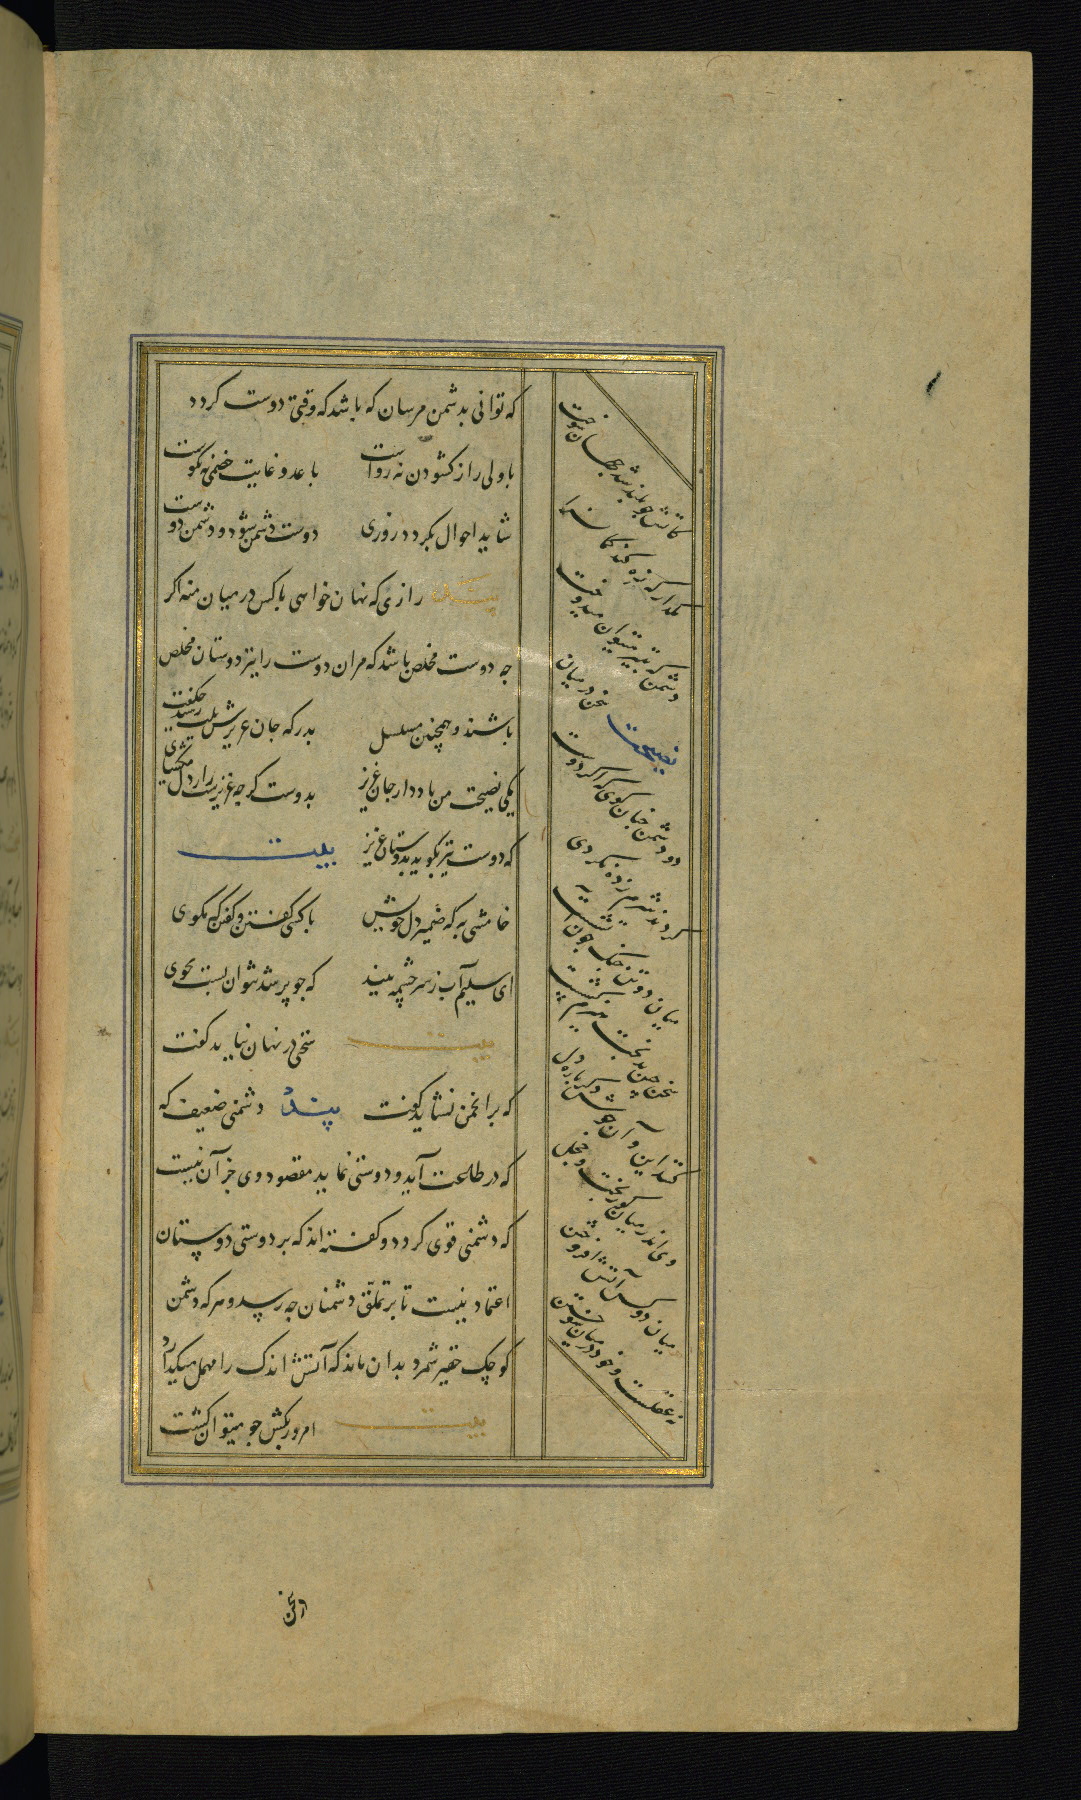 که توانی بدشمن مرسان که باشد که وقتی دوست کردد
باولی راز کشودن نه رواست باعدو غایت خصمی نه نکوست
شاید احوال بکردد روزی دوست دشمن شود و دشمن دوست
پند رازی که نهان خواهی باکس در میان منه اکر
چه دوست مخلص باشد که مران دوست را نیز دوستان مخلص
باشند و همچنین مسلسل
یکی نصیحت من یاد دار جان عزیز بدوست کرچه عزیزست راز دل مکشای
که دوست نیز بکوید بدوستان عزیز بیت
خامشی به که ضمیر دل خویش باکسی کفتن و کفتن که مکوی
ای سلیم آب ز سر چشمه ببند که جو پر شد نتوان بست بجوی
بیت سخنی در نهان نباید کفت
که بر انجمن نشاید کفت پند دشمنی ضعیف که
که در طاعت آید و دوستی نماید مقصود وی جز آن نیست
که دشمنی قوی کردد و کفته اند که بر دوستی دوستان
اعتماد نیست تا بر تملق دشمنان چه رسد و هر که دشمن
کوچک حقیر شمرد بدان ماند که آتش اندک را مهمل میکذارد
بیت امروز بکش چو میتوان کشت
کاتش چو بلند شد جهان سوخت
مکذار که زه کند کمان را
دشمن که بتیر میتوان دوخت
نصیحت سخن در میان
دو دشمن چنان کوی که اکر دوست
کردند شرم زده نکردی
میان دو تن جنک چون آتشست
سخن چین بدبخت هیزم کشست
کنند این و آن خوش دکر باره دل
وی اندر میان کوربخت و خجل
میان دو کس آتش افروختن
نه عقلست و خود در میان سوختن